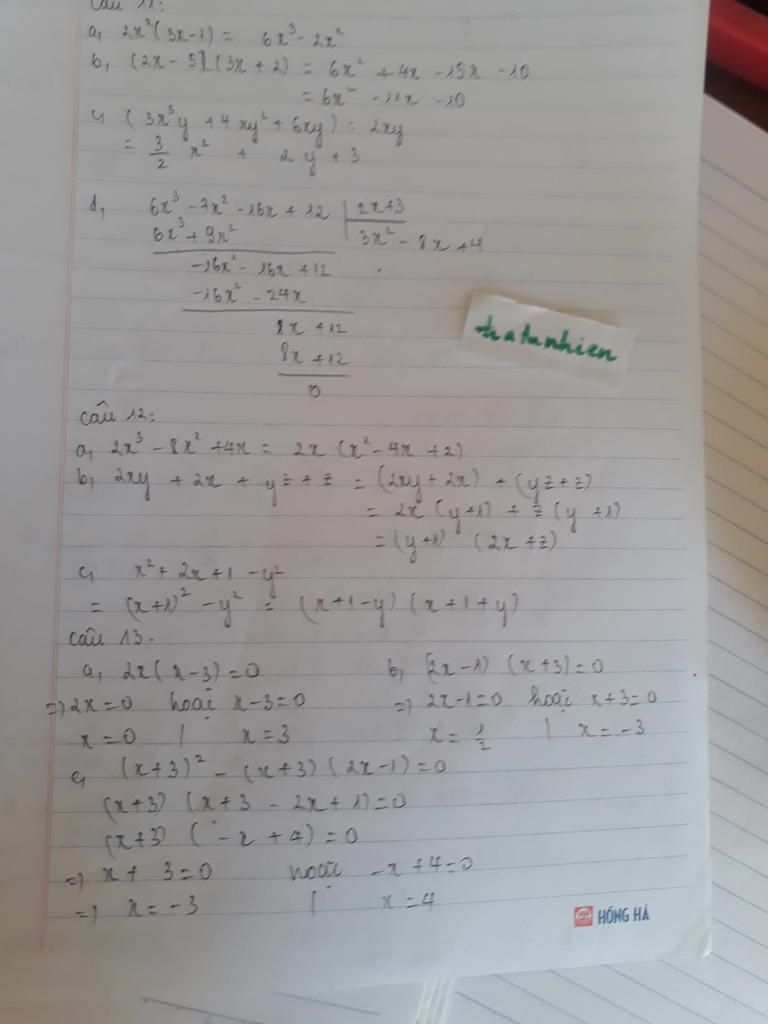 Câu 11:
a, 2x²(3x-1) = 6x³ - 2x²
b, (2x - 5)(3x + 2) = 6x² + 4x - 15x - 10
= 6x² - 11x - 10
c, (3x³y + 4xy² + 6xy) : 2xy
= 3/2 x² + 2y + 3
d, 6x³ - 7x² - 16x + 12 | 2x+3
6x³ + 9x² | 3x² - 8x + 4
-16x² - 16x + 12
-16x² - 24x
8x + 12
thatunhien
8x + 12
0
Câu 12:
a, 2x³ - 8x² + 4x = 2x (x² - 4x + 2)
b, 2xy + 2x + yz + z = (2xy + 2x) + (yz + z)
= 2x (y+1) + z (y +1)
= (y+1) (2x + z)
c, x² + 2x + 1 - y²
= (x+1)² - y² = (x+1-y) (x+1+y)
Câu 13.
a, 2x(x-3) = 0 b, (2x-1) (x+3) = 0
=> 2x = 0 hoặc x-3=0 => 2x-1=0 hoặc x+3=0
x = 0 | x = 3 x = 1/2 | x = -3
c, (x+3)² - (x+3)(2x-1) = 0
(x+3) (x+3 - 2x + 1) = 0
(x+3) (-x + 4) = 0
=> x + 3 = 0 hoặc -x + 4 = 0
=> x = -3 | x = 4
HỒNG HÀ